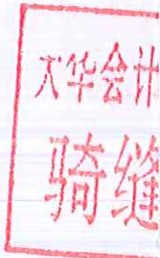 大华会计
骑缝